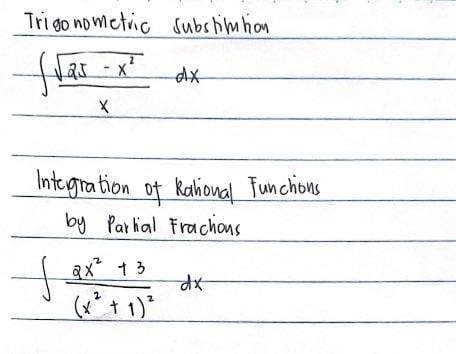 Trigonometric Substitution
∫ √25 - x² / x dx
Integration of Rational Functions
by Partial Fractions
∫ 2x² + 3 / (x² + 1)² dx